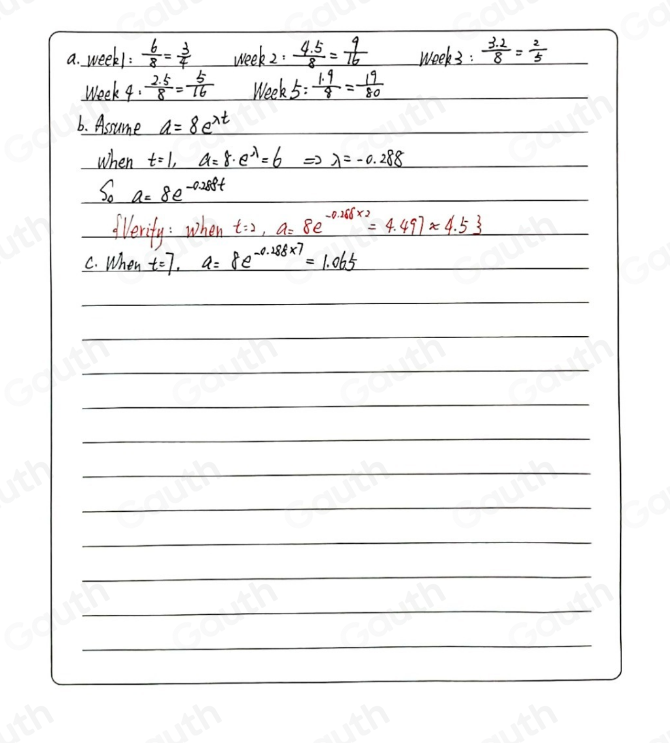 a. week1: 6/8 = 3/4 week2: 4.5/8 = 9/16 Week3: 3.2/8 = 2/5
Week 4: 2.5/8 = 5/16 Week5: 1.9/8 = 19/80
b. Assume a = 8e^λt
when t=1, a = 8·e^λ = 6 => λ = -0.288
So a = 8e^-0.288t
{Verify: when t=2, a = 8e^-0.288×2 = 4.497 ≈ 4.5}
c. When t=7, a = 8e^-0.288×7 = 1.065